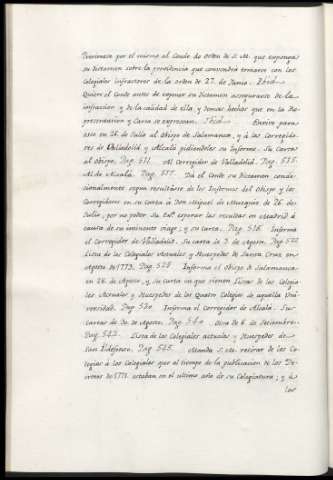 Previenese por el mismo al Conde de orden de S. M. que exponga
su dictamen sobre la providencia que convendrá tomarse con los
Colegiales infractores de la orden de 27. de Junio. Ibid.
Quiere el Conde antes de exponer su Dictamen asegurarse de la
infraccion y de la calidad de ella, y demas hechos que en la Re-
presentacion y Carta se expresan. Ibid. Envia para
esto en 26. de Julio al Obispo de Salamanca, y á los Corregido-
res de Valladolid y Alcalá pidiendoles su Informe. Su Carta
al Obispo. Pag. 511. Al Corregidor de Valladolid. Pag. 515.
Al de Alcalá. Pag. 517. Dá el Conde su Dictamen condi-
cionalmente segun resultáre de los Informes del Obispo y los
Corregidores en su carta á Don Miguel de Muzquiz de 26. de
Julio, por no poder Su Exª esperar las resultas en Madrid á
causa de su iminente viage; y su Carta. Pag. 518. Informa
el Corregidor de Valladolid. Su carta de 3. de Agosto. Pag. 522
Lista de los Colegiales actuales y Huespedes de Santa Cruz en
Agosto de 1773. Pag. 528. Informa el Obispo de Salamanca
en 28. de Agosto, y su Carta en que vienen Listas de los Colegia-
les Actuales y Huespedes de los Quatro Colegios de aquella Uni-
versidad. Pag. 530. Informa el Corregidor de Alcalá. Su
Carta de 30. de Agosto. Pag. 540. Otra de 6. de Setiembre.
Pag. 543. Lista de los Colegiales actuales y Huespedes de
San Ildefonso. Pag. 545. Manda S. M. retirar de los Co-
legios á los Colegiales que al tiempo de la publicacion de los De-
cretos de 1771. estaban en el ultimo año de su Colegiatura; y á
los